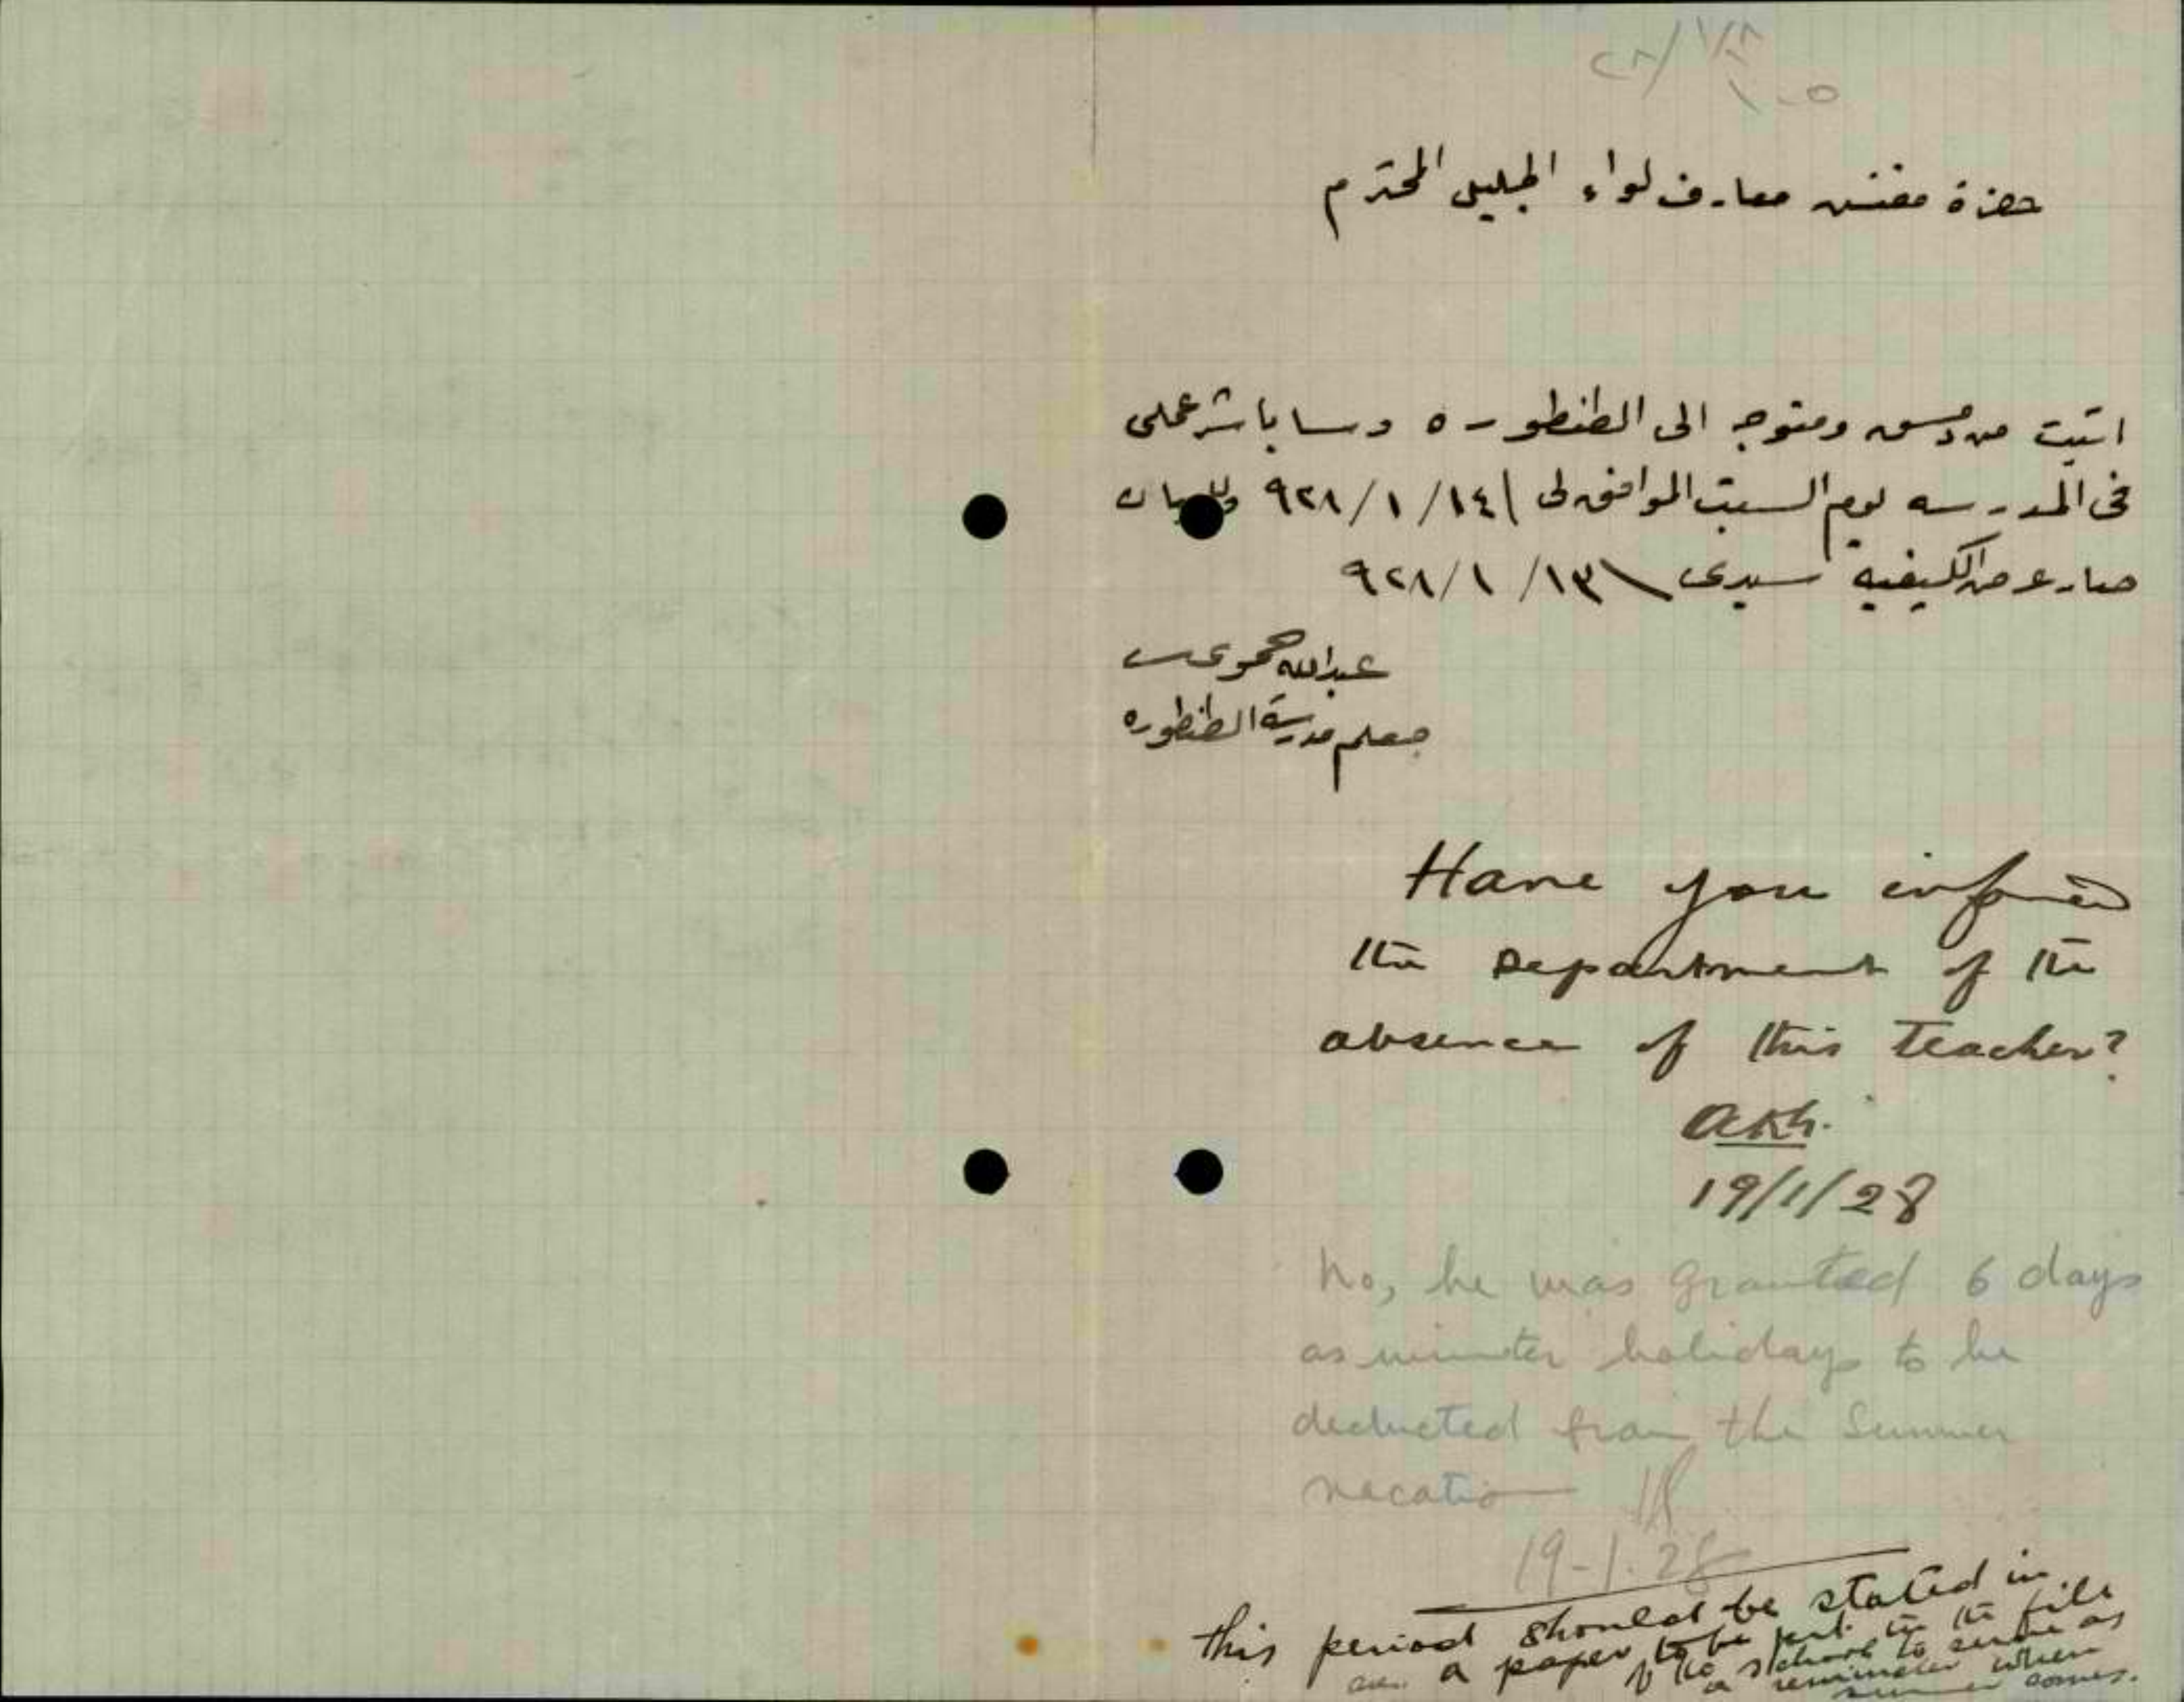 حضرة مفتش معارف لواء الجليل المحترم
اتيت من دمشق ومتوجه الى الطنطوره وسأباشر عملي
في المدرسه يوم السبت الموافق لى ١٤/١/٩٢٨ وللبيان
صار عرض الكيفيه سيدي ١٣/١/٩٢٨
عبدالله
معلم مدرسة الطنطوره
Have you informed
the Department of the
absence of this Teacher?
AKh.
19/1/28
No, he was granted 6 days
as winter holidays to be
deducted from the Summer
vacation
19-1.28
this period should be stated in
a paper to be put in the file
of the school to serve as
a reminder when
summer comes.